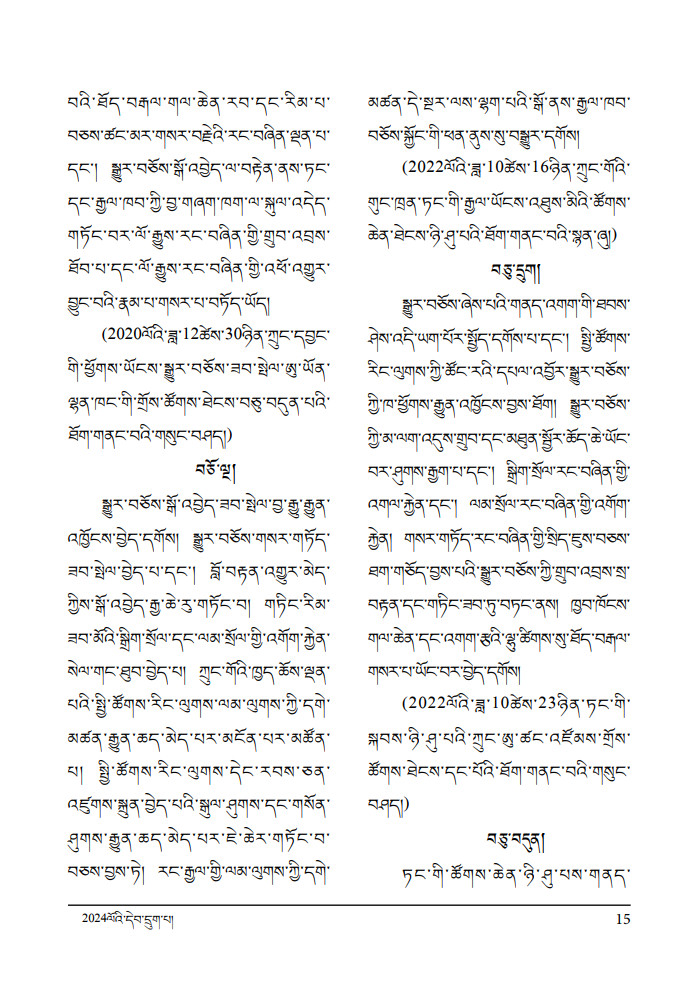 བའི་ཐོད་བརྒལ་གལ་ཆེན་རབ་དང་རིམ་པ་
བཅས་ཚང་མར་གསར་བརྗེའི་རང་བཞིན་ལྡན་པ་
དང་། སྒྱུར་བཅོས་སྒོ་འབྱེད་ལ་བརྟེན་ནས་ཏང་
དང་རྒྱལ་ཁབ་ཀྱི་བྱ་གཞག་ཁག་ལ་སྐུལ་འདེད་
གཏོང་བར་ལོ་རྒྱུས་རང་བཞིན་གྱི་གྲུབ་འབྲས་
ཐོབ་པ་དང་ལོ་རྒྱུས་རང་བཞིན་གྱི་འཕོ་འགྱུར་
བྱུང་བའི་རྣམ་པ་གསར་པ་བཏོད་ཡོད།
(2020ལོའི་ཟླ་12ཚེས་30ཉིན་ཀྲུང་དབྱང་
གི་ཕྱོགས་ཡོངས་སྒྱུར་བཅོས་ཟབ་སྤེལ་ཨུ་ཡོན་
ལྷན་ཁང་གི་གྲོས་ཚོགས་ཐེངས་བཅུ་བདུན་པའི་
ཐོག་གནང་བའི་གསུང་བཤད།)
བཅོ་ལྔ།
སྒྱུར་བཅོས་སྒོ་འབྱེད་ཟབ་སྤེལ་བྱ་རྒྱུ་རྒྱུན་
འཁྱོངས་བྱེད་དགོས། སྒྱུར་བཅོས་གསར་གཏོད་
ཟབ་སྤེལ་བྱེད་པ་དང་། བློ་བརྟན་འགྱུར་མེད་
ཀྱིས་སྒོ་འབྱེད་རྒྱ་ཆེ་རུ་གཏོང་བ། གཏིང་རིམ་
ཟབ་མོའི་སྒྲིག་སྲོལ་དང་ལམ་སྲོལ་གྱི་འགོག་རྐྱེན་
སེལ་གང་ཐུབ་བྱེད་པ། ཀྲུང་གོའི་ཁྱད་ཆོས་ལྡན་
པའི་སྤྱི་ཚོགས་རིང་ལུགས་ལམ་ལུགས་ཀྱི་དགེ་
མཚན་རྒྱུན་ཆད་མེད་པར་མངོན་པར་མཚོན་
པ། སྤྱི་ཚོགས་རིང་ལུགས་དེང་རབས་ཅན་
འཛུགས་སྐྲུན་བྱེད་པའི་སྒུལ་ཤུགས་དང་གསོན་
ཤུགས་རྒྱུན་ཆད་མེད་པར་ཇེ་ཆེར་གཏོང་བ་
བཅས་བྱས་ཏེ། རང་རྒྱལ་གྱི་ལམ་ལུགས་ཀྱི་དགེ་
མཚན་དེ་སྔར་ལས་ལྷག་པའི་སྒོ་ནས་རྒྱལ་ཁབ་
བཅོས་སྐྱོང་གི་ཕན་ནུས་སུ་བསྒྱུར་དགོས།
(2022ལོའི་ཟླ་10ཚེས་16ཉིན་ཀྲུང་གོའི་
གུང་ཁྲན་ཏང་གི་རྒྱལ་ཡོངས་འཐུས་མིའི་ཚོགས་
ཆེན་ཐེངས་ཉི་ཤུ་པའི་ཐོག་གནང་བའི་སྙན་ཞུ།)
བཅུ་དྲུག།
སྒྱུར་བཅོས་ཞེས་པའི་གནད་འགག་གི་ཐབས་
ཤེས་འདི་ཡག་པོར་སྤྱོད་དགོས་པ་དང་། སྤྱི་ཚོགས་
རིང་ལུགས་ཀྱི་ཚོང་རའི་དཔལ་འབྱོར་སྒྱུར་བཅོས་
ཀྱི་ཁ་ཕྱོགས་རྒྱུན་འཁྱོངས་བྱས་ཐོག། སྒྱུར་བཅོས་
ཀྱི་མ་ལག་འདུས་གྲུབ་དང་མཐུན་སྦྱོར་ཚོད་ཆེ་ཡོང་
བར་ཤུགས་རྒྱག་པ་དང་། སྒྲིག་སྲོལ་རང་བཞིན་གྱི་
འགལ་རྐྱེན་དང་། ལམ་སྲོལ་རང་བཞིན་གྱི་འགོག་
རྐྱེན། གསར་གཏོད་རང་བཞིན་གྱི་སྲིད་ཇུས་བཅས་
ཐག་གཅོད་བྱས་པའི་སྒྱུར་བཅོས་ཀྱི་གྲུབ་འབྲས་སྲ་
བརྟན་དང་གཏིང་ཟབ་ཏུ་བཏང་ནས། ཁྱབ་ཁོངས་
གལ་ཆེན་དང་འགག་རྩའི་ལྷུ་ཚིགས་སུ་ཐོད་བརྒལ་
གསར་པ་ཡོང་བར་བྱེད་དགོས།
(2022ལོའི་ཟླ་10ཚེས་23ཉིན་ཏང་གི་
སྐབས་ཉི་ཤུ་པའི་ཀྲུང་ཨུ་ཚང་འཛོམས་གྲོས་
ཚོགས་ཐེངས་དང་པོའི་ཐོག་གནང་བའི་གསུང་
བཤད།)
བཅུ་བདུན།
ཏང་གི་ཚོགས་ཆེན་ཉི་ཤུ་པས་གནད་
2024ལོའི་དེབ་དྲུག་པ། 15